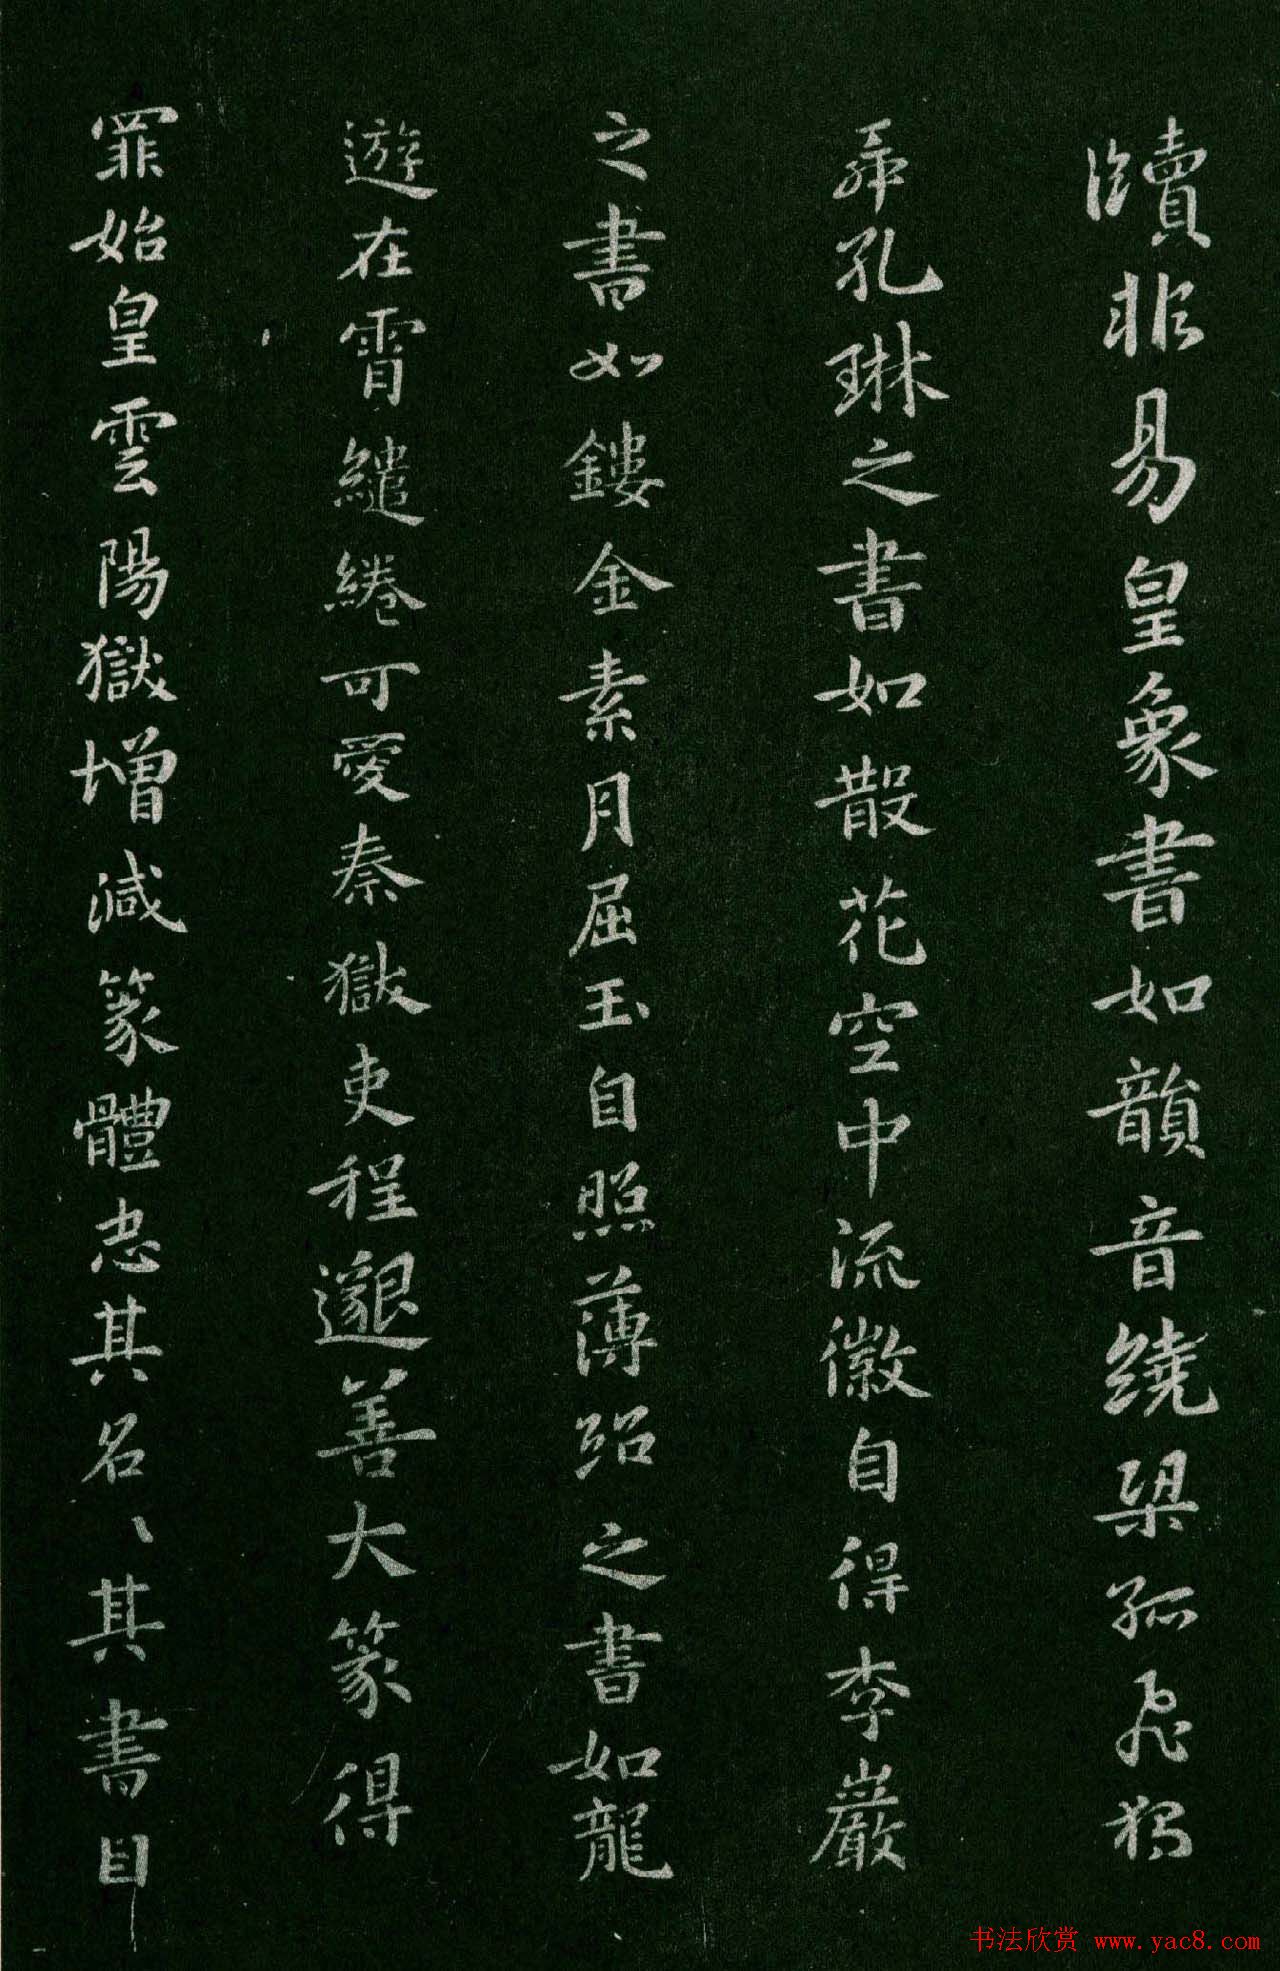 牘非易皇象書如韻音繞梁孤飛獨
舞孔琳之書如散花空中流徽自得李巖
之書如鏤金素月屈玉自照薄紹之書如龍
遊在霄繾綣可愛秦獄吏程邈善大篆得
罪始皇雲陽獄增減篆體志其名〻其書曰
书法欣赏 www.yac8.com